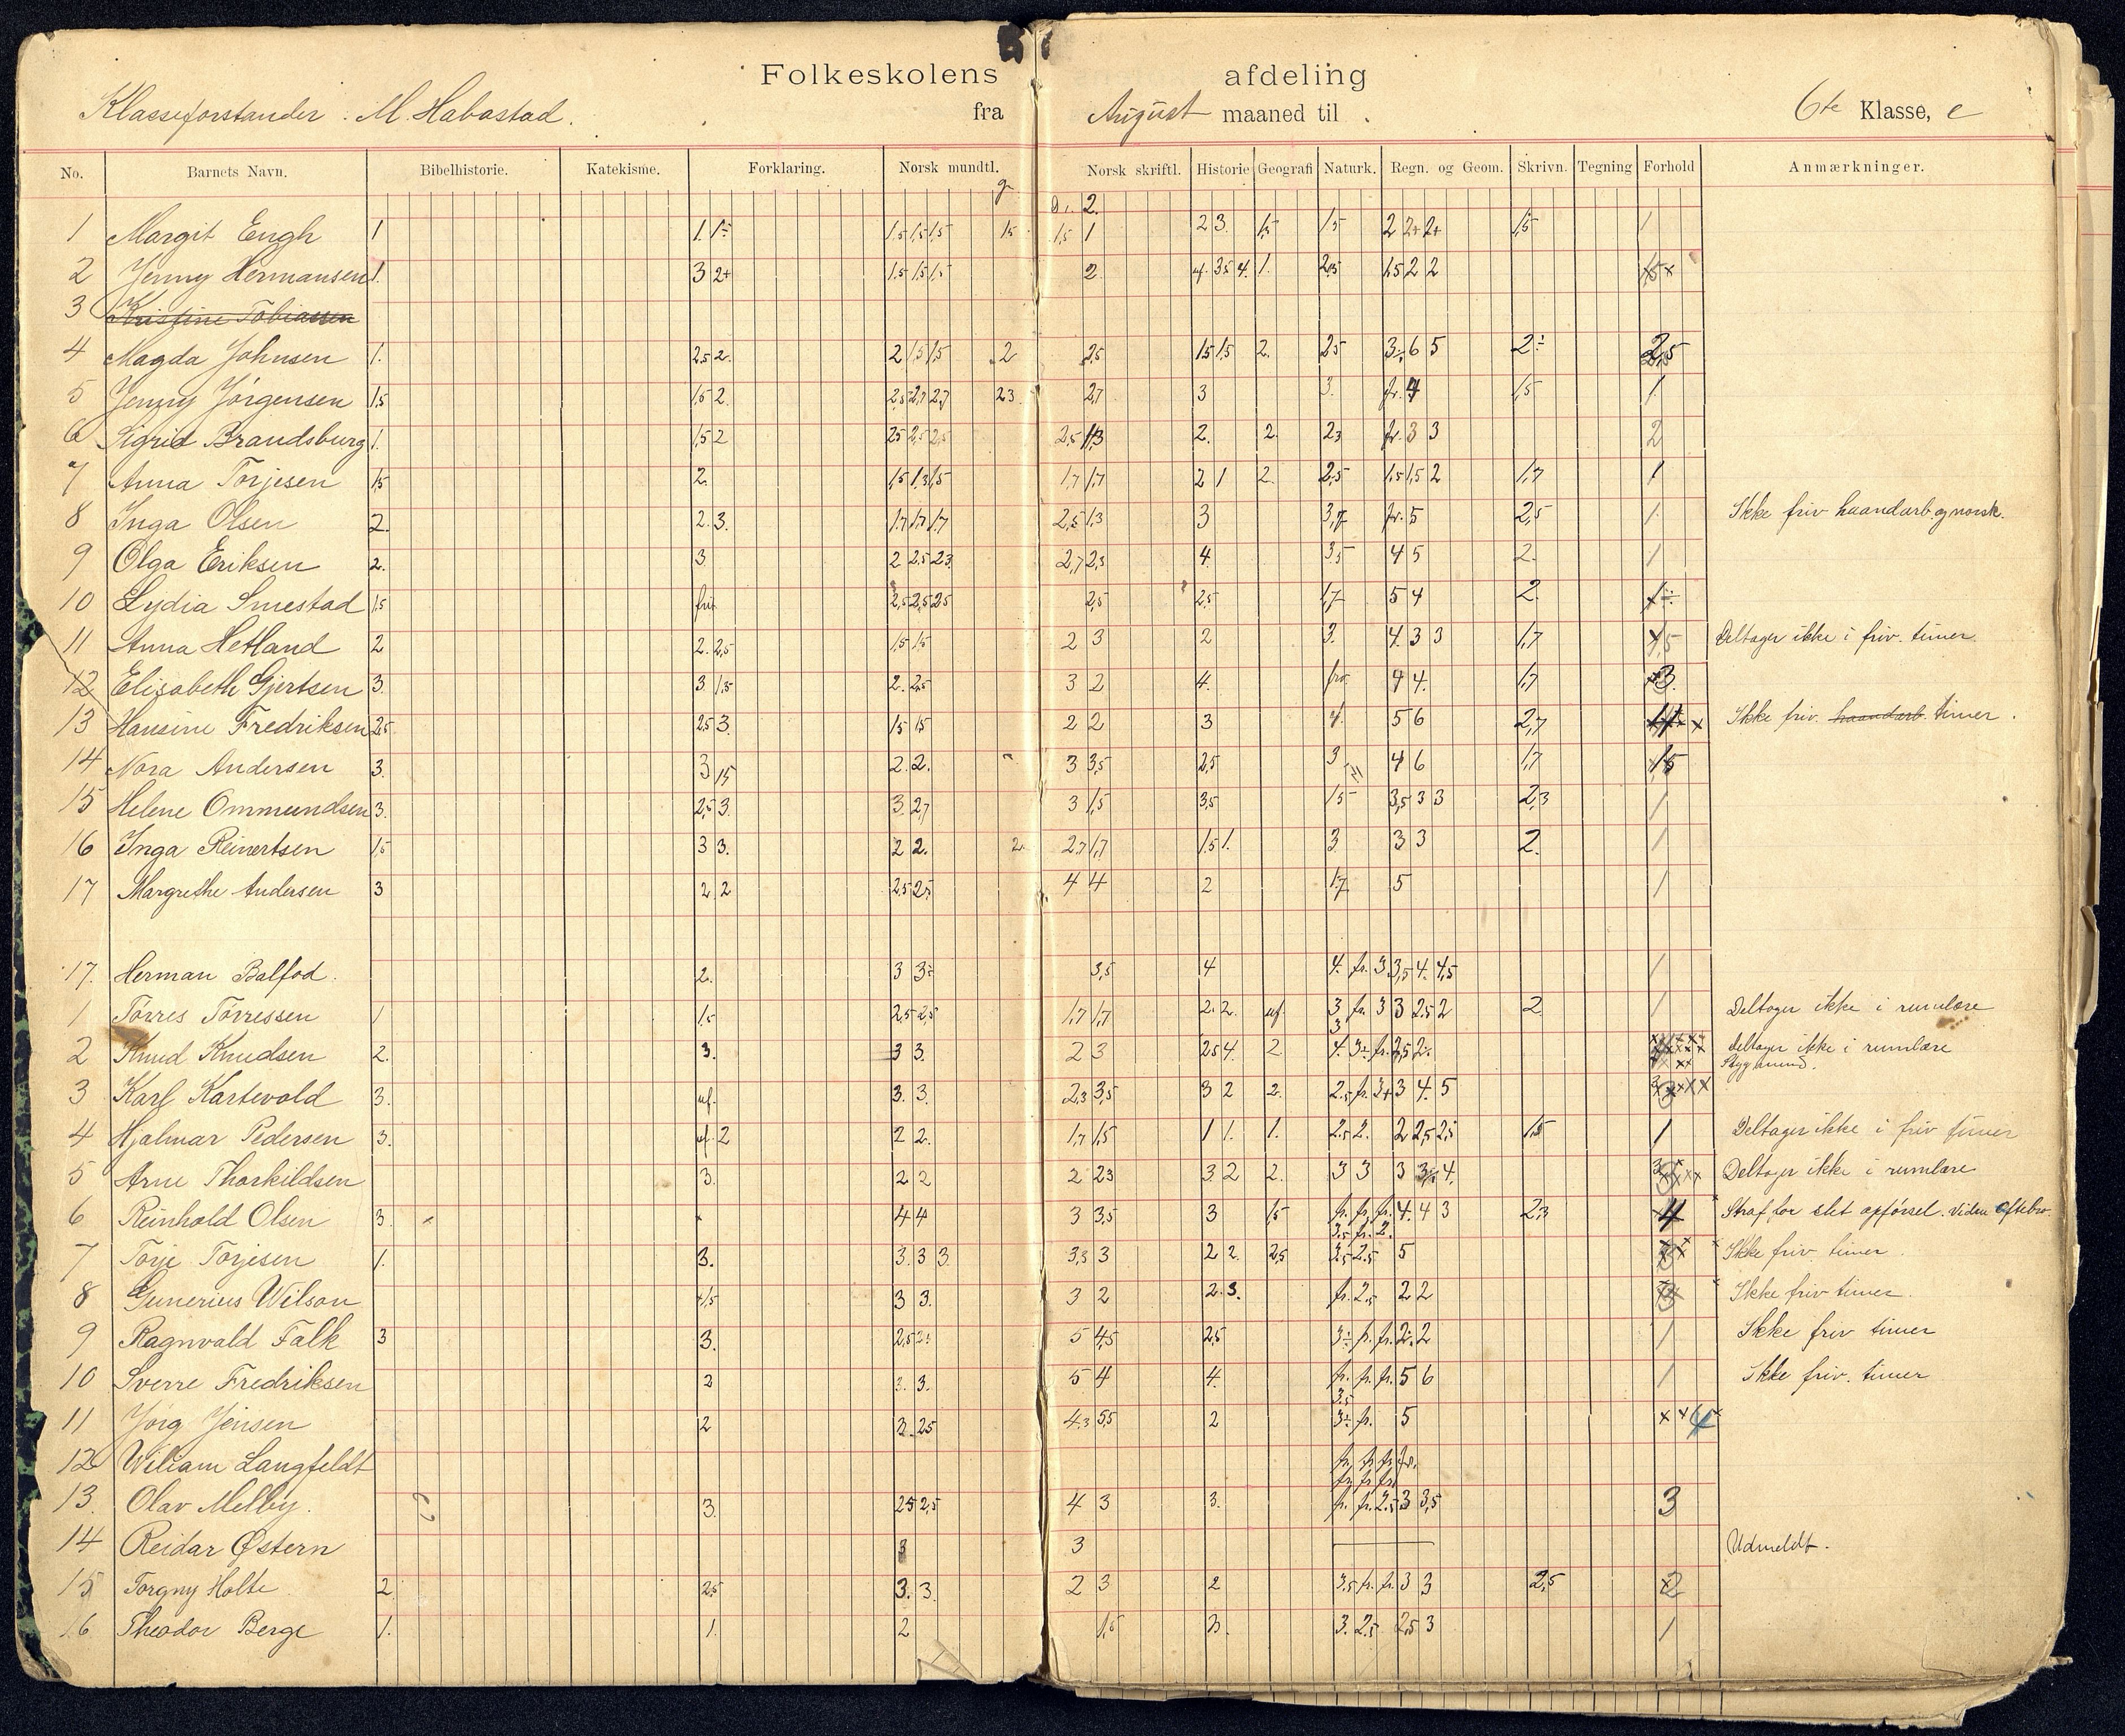 Folkeskolens afdeling
Klasseforstander: M. Habostad. fra August maaned til 6te Klasse, c
No. Barnets Navn. Bibelhistorie. Katekisme. Forklaring. Norsk mundtl. Norsk skriftl. Historie Geografi Naturk. Regn. og Geom. Skrivn. Tegning Forhold Anmærkninger.
1 Margit Engh 1 1. 1÷ 1,5 1,5 1,5 15 1,5 1 2 3. 1,5 1,5 2 2+ 2+ 1,5 1
2 Jenny Hermansen 1. 3 2+ 1.5 1.5 1,5 2 1. 2,5 1,5 2 2
3 Kristine Tobiassen
4 Magda Johnsen 1. 2,5 2. 2 1,5 1,5 2 2,5 1,5 1,5 2. 2,5 3÷ 6 5 2÷ 2,5
5 Jenny Jörgensen 1,5 1,5 2. 2,7 2,7 23 2,7 3 3. fr. 4 1,5 1.
6 Sigrid Brandsburg 1. 1,5 2 2,5 2,5 2,5 2,5 1,3 2. 2. 2,3 fr. 3 3 2
7 Anna Torjesen 1,5 2. 1,5 1,3 1,5 1,7 1,7 2 1 2. 2,5 1,5 1,5 2 1,7 1
8 Inga Olsen 2. 2. 3. 1,7 1,7 1,7 2,5 1,3 3 3,7 fr. 5 2,5 1. Ikke friv haandarb. og norsk.
9 Olga Eriksen 2. 3 2 2,5 2,3 2,7 2,3 4 3,5 4 5 2. 1
10 Lydia Smestad 1,5 fri. 2,5 2,5 2,5 2,5 2,5 1,7 5 4 2.
11 Anna Hetland 2 2. 2,5 1,5 1,5 2 3 2 3. 4. 3 3 1,7 Deltager ikke i friv. timer
12 Elisabeth Gjertsen 3. 3 1,5 2. 2,5 3 2 4. 4 4. 1,7
13 Hansine Fredriksen 2,5 2,5 3. 1,5 1,5 2 2 3 5 6 2,7 Ikke friv. haandarb. timer.
14 Nora Andersen 3. 3 1,5 2. 2. 3 3,5 2,5 3 4 6 1,7
15 Helene Ommundsen 3. 2,5 3. 3. 2,7 3 1,5 3,5 1,5 3,5 3 3 2,3 1
16 Inga Reinertsen 1,5 3 3. 2 2. 2 2,7 1,7 1,5 1. 3 3 3 2. 1
17 Margrethe Andersen 3 2 2 2,5 2,5 4 4 2 1,7 5 1
17. Herman Balfod. 2. 3 3÷ 3,5 4 4. fr. 3 3,5 4. 4,5 1
1 Tórres Tórressen 1 1,5 2,5 2,5 1,7 1,7 2. 2. uf. 3 fr. 3 3 2,5 2 2 1 Deltager ikke i rumlære
2 Knud Knudsen 2. 3. 3 3. 2 3 2,5 4. 2 4. 3÷ fr. 2,5 2÷ deltager ikke i rumlære
Stygmund.
3 Karl Kartevold 3. uf. 3. 3. 2,3 3,5 3 2 2. 2,5 fr. 2+ 3 4. 5
4 Hjalmar Pedersen 3. uf. 2 2 2. 1,7 1,5 1 1. 1. 2,5 2. 2 2,5 2,5 1,5 1 Deltager ikke i friv timer
5 Arne Thorkildsen 3. 2 2 2 2,3 3. 2 2. 3 3 3 3÷ 4. Deltager ikke i rumlære
6 Reinhold Olsen 3. 4 4 3 3,5 3 1,5 fr. fr. fr. 4. 4 3 2,3 4 Straf for slet opførsel.
3,5 fr. 2.
7 Torje Torjesen 1. 3. 3. 3 3. 3,3 3 2 2. 2,5 3,5 2,5 5 Ikke friv. timer
8 Gunerius Wilson 3 3. 3 2 2. 3. fr. 2,5 2 2 Ikke friv timer.
9 Ragnvald Falk 3 3. 2,5 2÷ 5 4,5 2,5 3÷ fr. fr. 2÷ 2 1 Ikke friv timer
10 Sverre Fredriksen 2 3. 3. 5 4 4. fr. fr. fr. 5 6 1 Ikke friv. timer
3,5
11 Jörg Jensen 2 2. 2,5 4,3 5,5 2 3÷ fr. 5 4
12 Wiliam Langfeldt fr. fr. fr. fr.
fr. fr. fr.
13. Olav Melby. 3. 2,5 2,5 4 3 3. fr. fr. 2,5 3 3,5 3
14 Reidar Østern 3 3 Udmeldt.
15 Torgny Holte 2. 2,5 3. 3. 2 3 2 3,5 fr. fr. 3 3 2,5 2
16 Theodor Berge 1. 1. 2 1,5 3. 3. 2,5 2,5 3 1